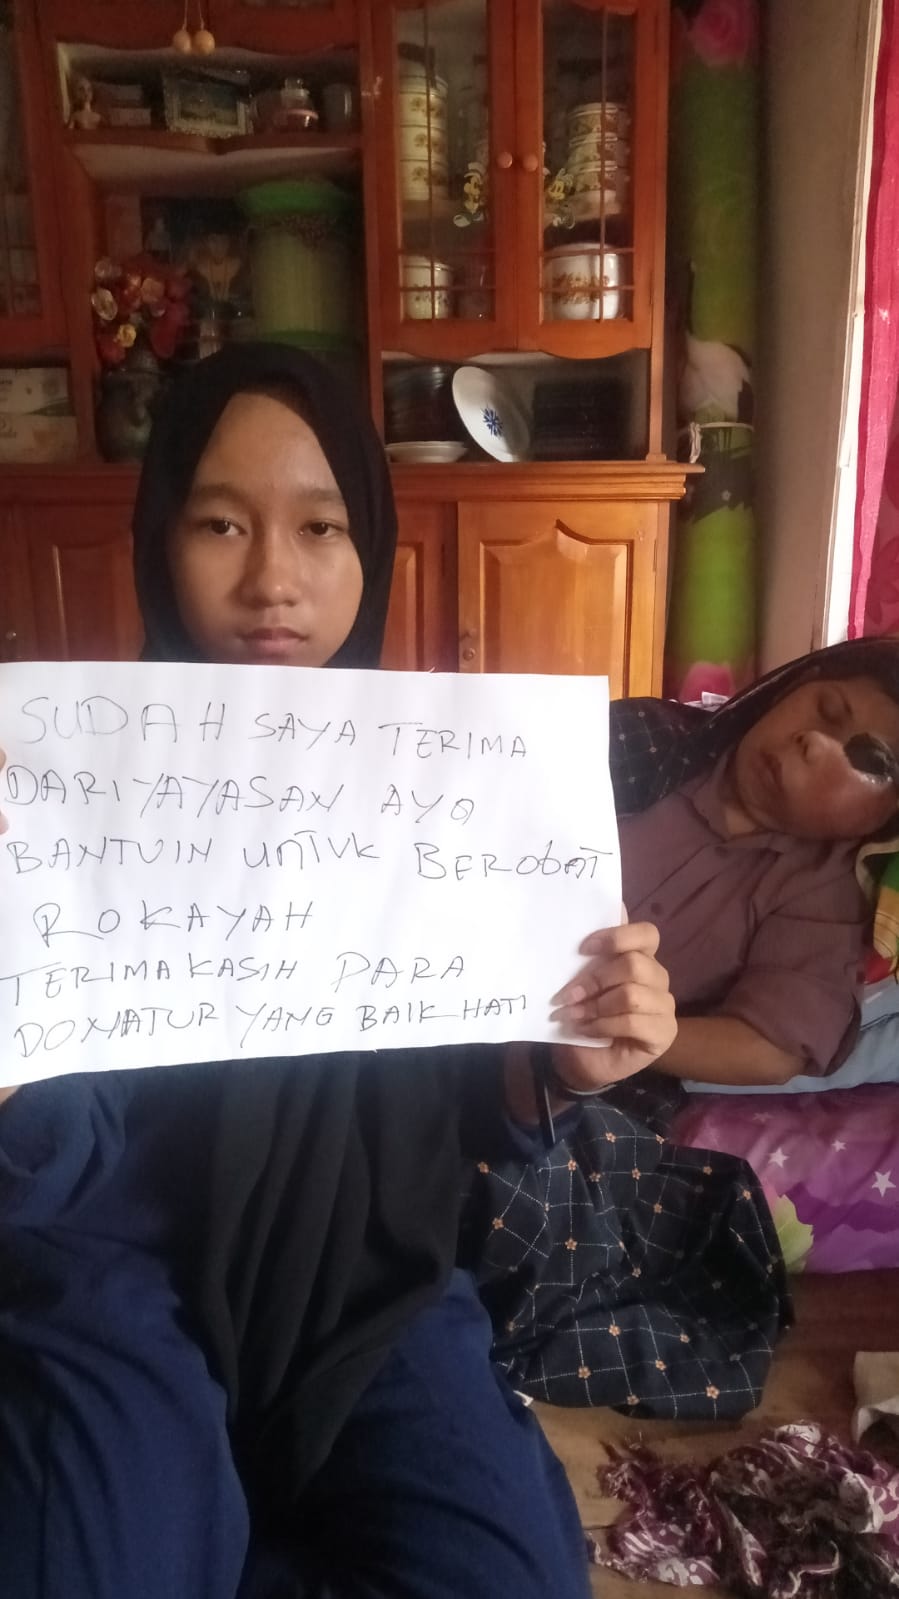 SUDAH SAYA TERIMA
DARI YAYASAN AYO
BANTUIN UNTUK BEROBAT
ROKAYAH
TERIMAKASIH PARA
DONATUR YANG BAIK HATI